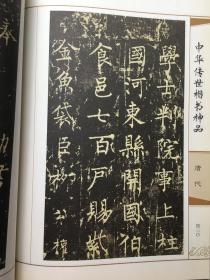 中华传世楷书神品
唐代
學士判院事上柱
國河東縣開國伯
食邑七百户賜紫
金魚袋臣柳公權
奉